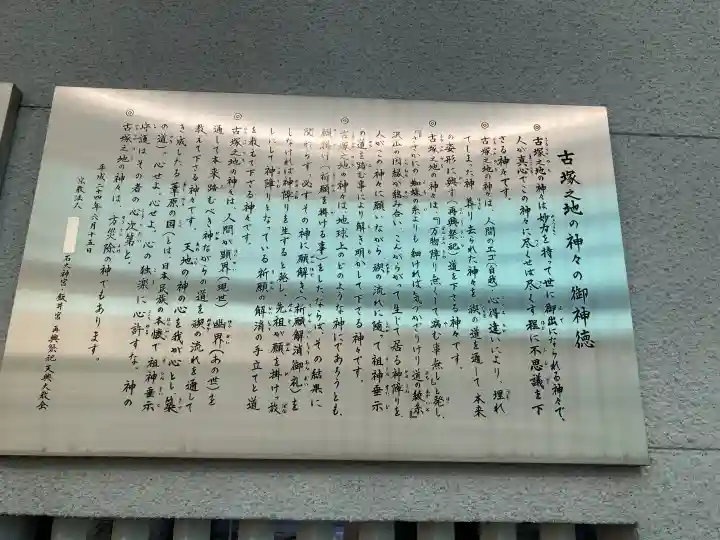 古塚之地の神々の御神德
◎古塚之地の神々は妙力を持て世に御出になられる神々で、
人が真心でこの神々に尽くせば尽くす程に不思議を下
さる神々です。
◎古塚之地の神々は、人間のエゴ(自我)心得違いにより、埋れ
てしまった神、葬り去られた神々を禊の道を通して、本来
の姿形に興す(再興祭祀)道を下さる神々です。
◎古塚之地の神々は、『万物障り点して病む事点しと発し、
『ささがにの蜘蛛の糸よりも細ければ気のかざりけり、道の枝糸』
沢山の因縁が絡み合い、こんがらがって生じて居る神障りを、
人がこの神々に願いながら禊の流れに随って祖神垂示
の道を踏む事により解き明かして下さる神々です。
◎古塚之地の神々は、地球上のどのような神にであろうとも、
願掛け(祈願を掛ける事)をしたならば、その結果に
関わらず、必ずその神に願解き(祈願解消御礼)を
しなければ神障りを生ずると発し、先祖が願を掛けっ放
しにして神障りとなっている祈願の解消の手立てと道
を教えて下さる神々です。
◎古塚之地の神々は、人間が顕界(現世)幽界(あの世)を
通して本来踏むべき神ながらの道を禊の流れを通して
教えて下さる神々です。天地の神の心を我が心とし築
き成したる葦原の国(とは、日本民族の本懐で祖神垂示
の道)、心せよ、心せよ、心の独楽に心許すな。神の
守護はその者の心次第と。
◎古塚之地の神々は、方災除の神でもあります。
平成二十四年六月十五日
宗教法人
石上神宮・数井宮 再興祭祀又興大教会